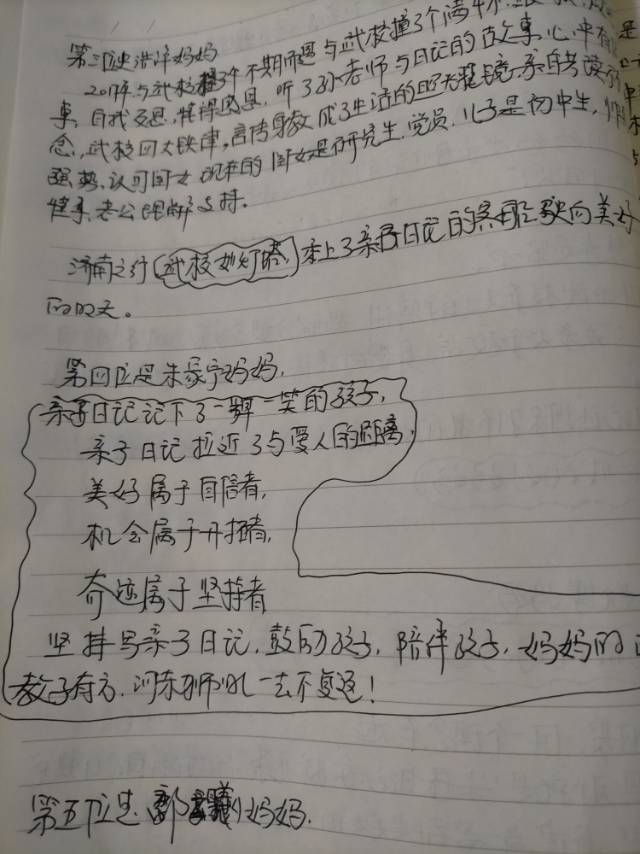 第三位史洪洋妈妈
2017年与武校不期而遇与武校撞3个满
事,自我反思,懂得感恩,听了孙老师与日记的故事,心中有
念,武校四大铁律,言传身教成了生活的照
强势,认可闺女现在的闺女是研究生.党员.儿子是初中生,
老公理解支持。
济南之行(武校如灯塔,)乘上了亲子日记的 驶向美好
的明天。
第四位是朱家宁妈妈,
亲子日记记下了一颦一笑的孩子,
亲子日记拉近了与爱人的距离,
美好属于自信者,
机会属于开拓者,
奇迹属于坚持者
坚持写亲子日记.鼓励孩子,陪伴孩子,妈妈的
教子有方.河东狮吼一去不复返!
第五位是 妈妈.